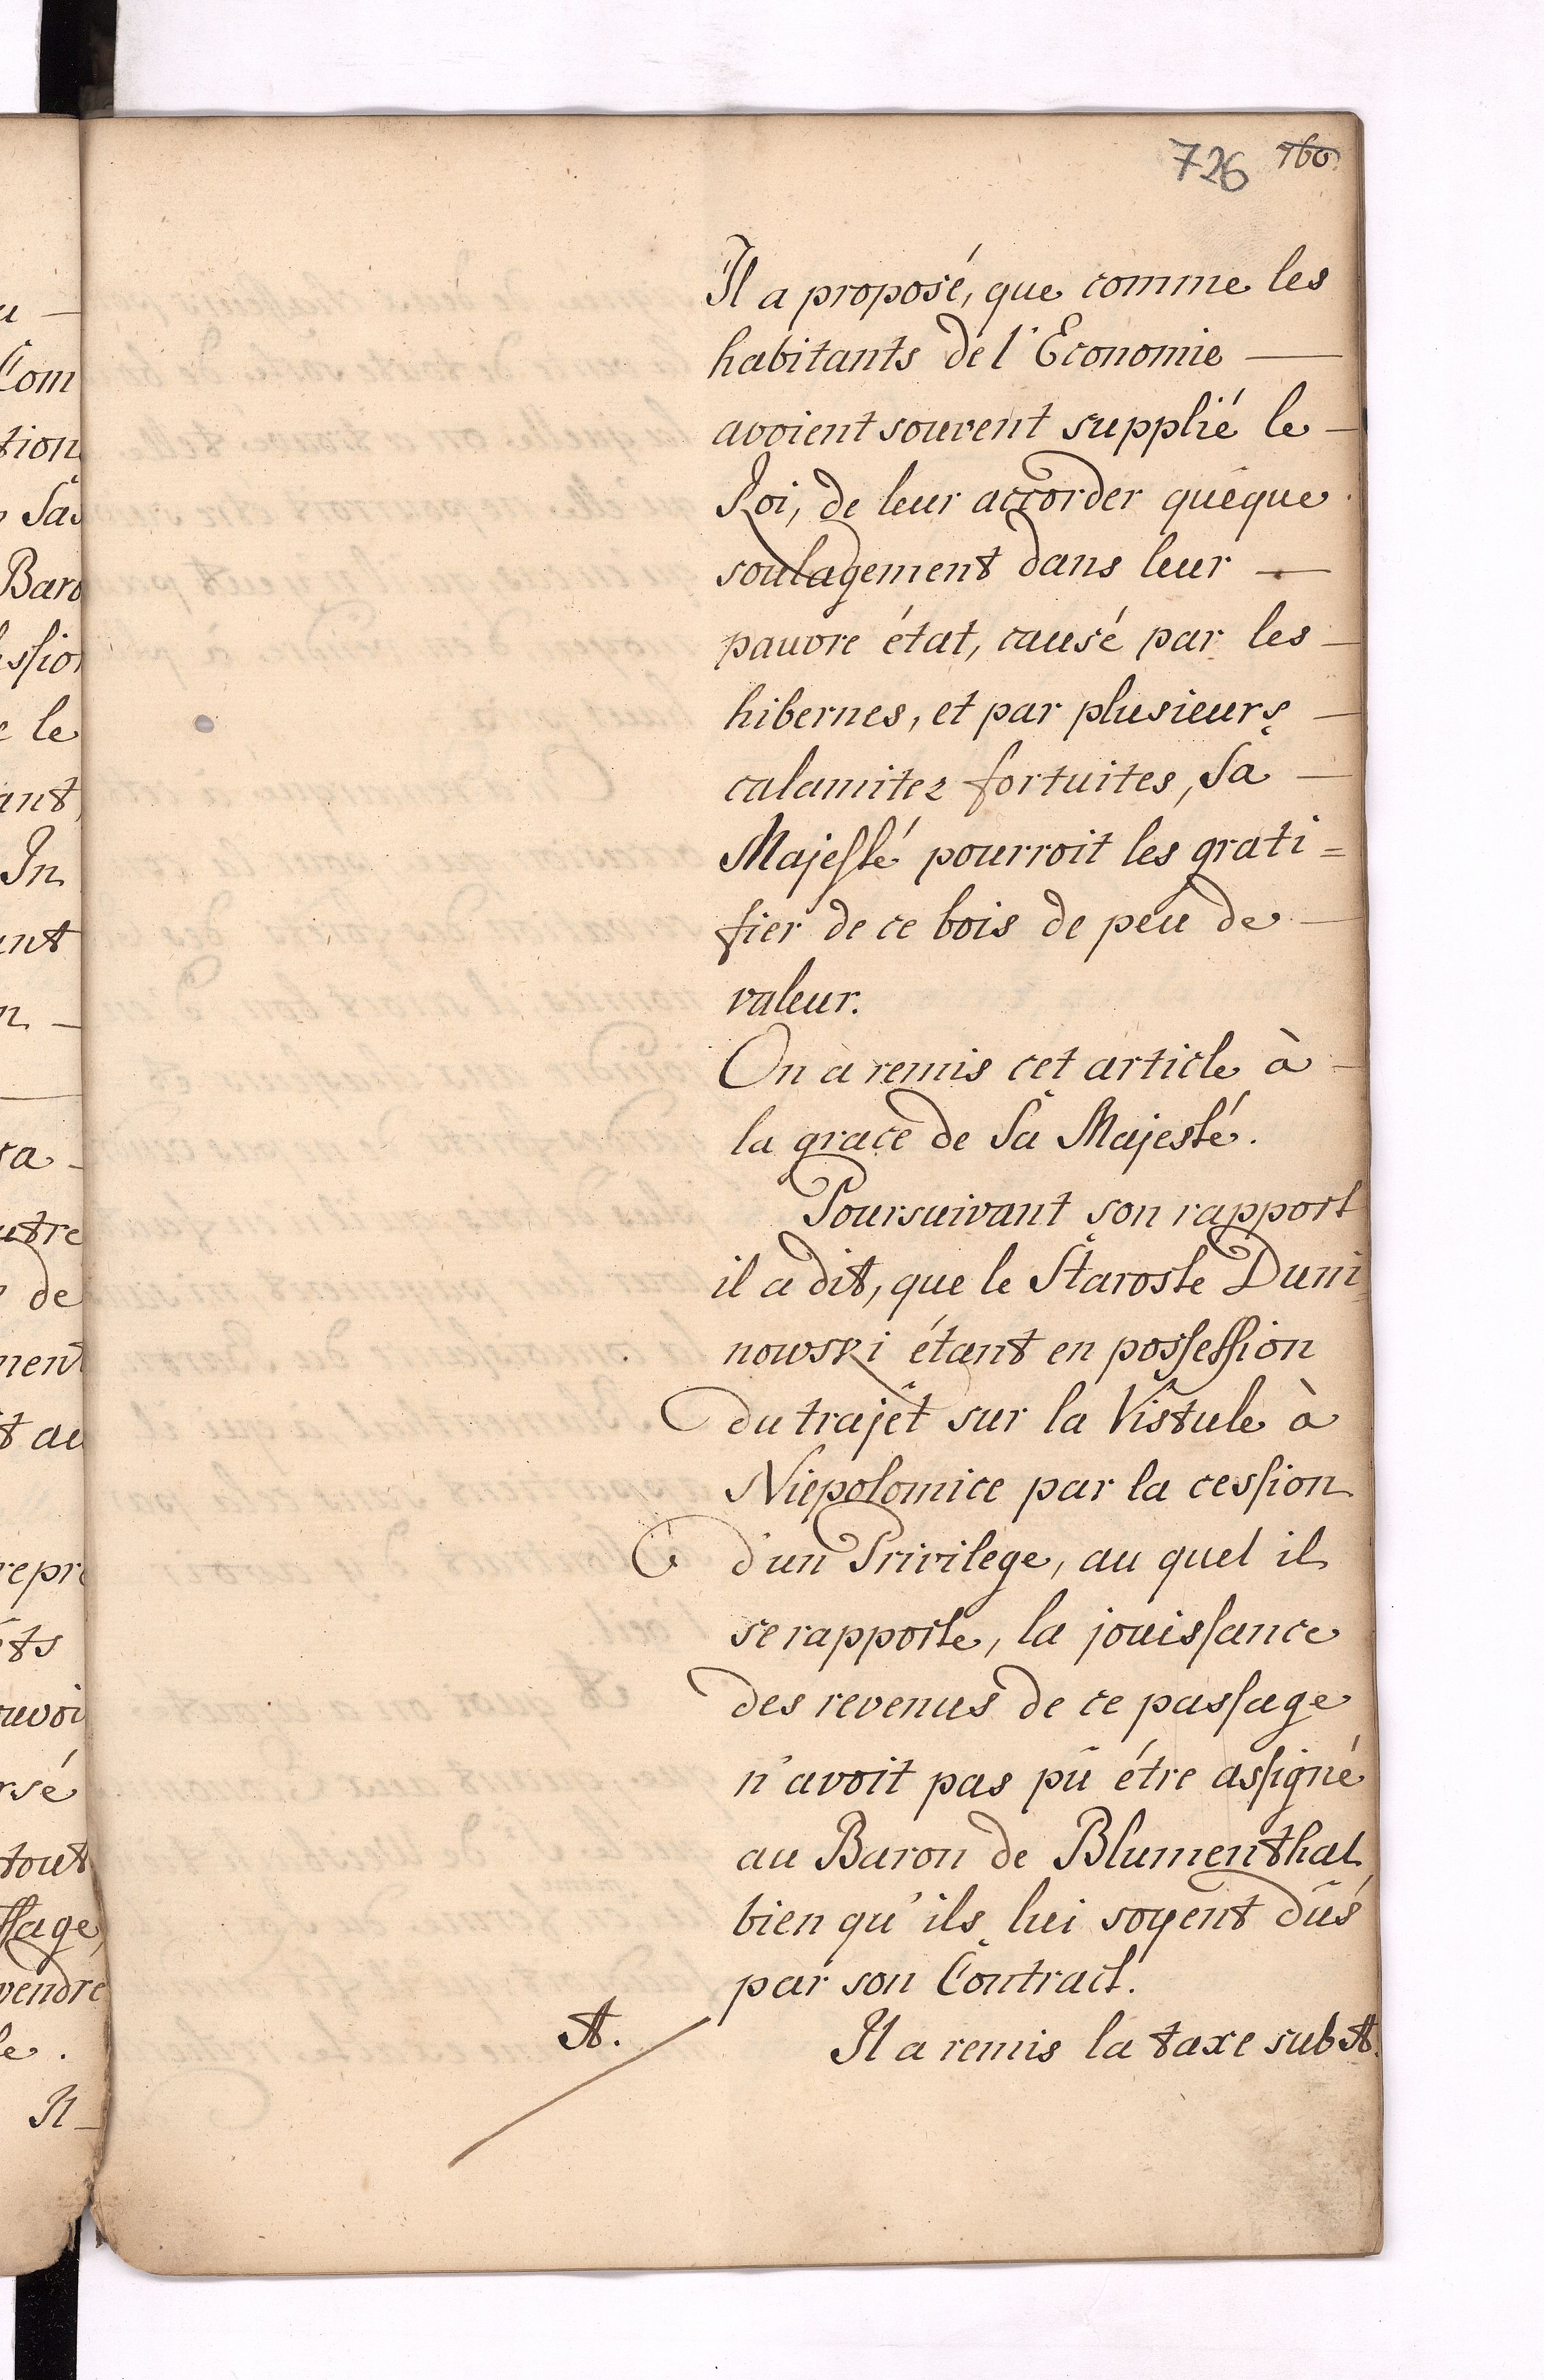 726 760.
Il a proposé, que comme les
habitants de l'Economie —
avoient souvent supplié le —
Roi, de leur accorder quéque
soulagement dans leur —
pauvre état, causé par les —
hibernes, et par plusieurs —
calamitez fortuites, Sa —
Majesté pourroit les grati=
fier de ce bois de peu de —
valeur.
On a remis cet article à —
la grace de Sa Majesté.
Poursuivant son rapport
il a dit, que le Staroste Duni
nowski étant en possession
du trajet sur la Vistule à
Niepolomice par la cession
d'un Privilege, au quel il
se rapporte, la jouissance
des revenus de ce passage
n'avoit pas pû étre assigné
au Baron de Blumenthal,
bien qu'ils lui soyent dûs
par son Contract.
A. Il a remis la taxe sub A.
u —
Com
tion
Sa
Baro
ssion
e le
ant,
In
ant
n —
ra —
utre
de
ment
t au
repre
ts
uvoi
rsé
tout
ssage,
vendre
le.
Il —